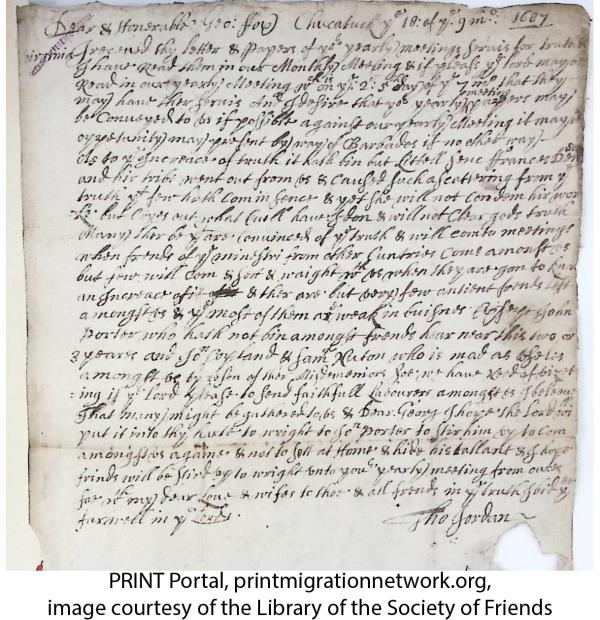 Dear & Honorable Geo: ffox) Chucatuck yᵉ 18: of yᵉ: 9 mᵒ: 1687
virginia I receved thy letter & Papers of yᵉ yearly meetings servis for truth &
I have Read them in our Monthly Meeting & if pleas yᵉ lord may
Read in our yearly Meeting wᶜʰ is on yᵉ: 2: 5ᵗʰ day of yᵉ 7 mᵒ that they
may have ther servis And I desire that yᵉ yearly meeting Papers may
be Conveyed to us if possible against our yearly Meeting it may
oppetunity may present by way of Barbados if no other way
As to yᵉ Increace of truth it hath bin but Littell senc Frances
and his tribe went out from us & Caused such a scattering from yᵉ
truth yᵗ few hath Com in sence & yet she will not Condem hir wor
-ks but Cryes out what Cutll have I don & will not Clear gods truth
Many ther be yᵗ are Convinced of yᵉ truth & will com to meetings
when frends of yᵉ ministri from other Cuntries Come amonst us
but few will com & sett & waight wᵗʰ us when they are gon to
an Increace of it & ther are but very few antient frends left
amongst us & yᵉ most of them are weak in buisnes John
Porter who hath not bin amongst frends hear near this two or
3 yeares and Joⁿ Copland & Samˡ Nuton who is mad
amongst us by resen of ther Misdemeniors soe we have need of
:ing if yᵉ Lord please to send faithfull Labourers amongst us I beleeve
that many might be gathered to us & Dear George I hope the Lord will
put it into thy harte to wright to Joⁿ Porter to stir him up to Com
amongst us againe & not to sett at Home & hide his tallant & I hope
frinds will be stird up to wright unto youʳ yearly meeting from
soe wᵗʰ my dear Love & wifes to thee & all frends in yᵉ truth I bid yᵉ
farewell in yᵉ Lord.
Tho Jordan
PRINT Portal, printmigrationnetwork.org,
image courtesy of the Library of the Society of Friends